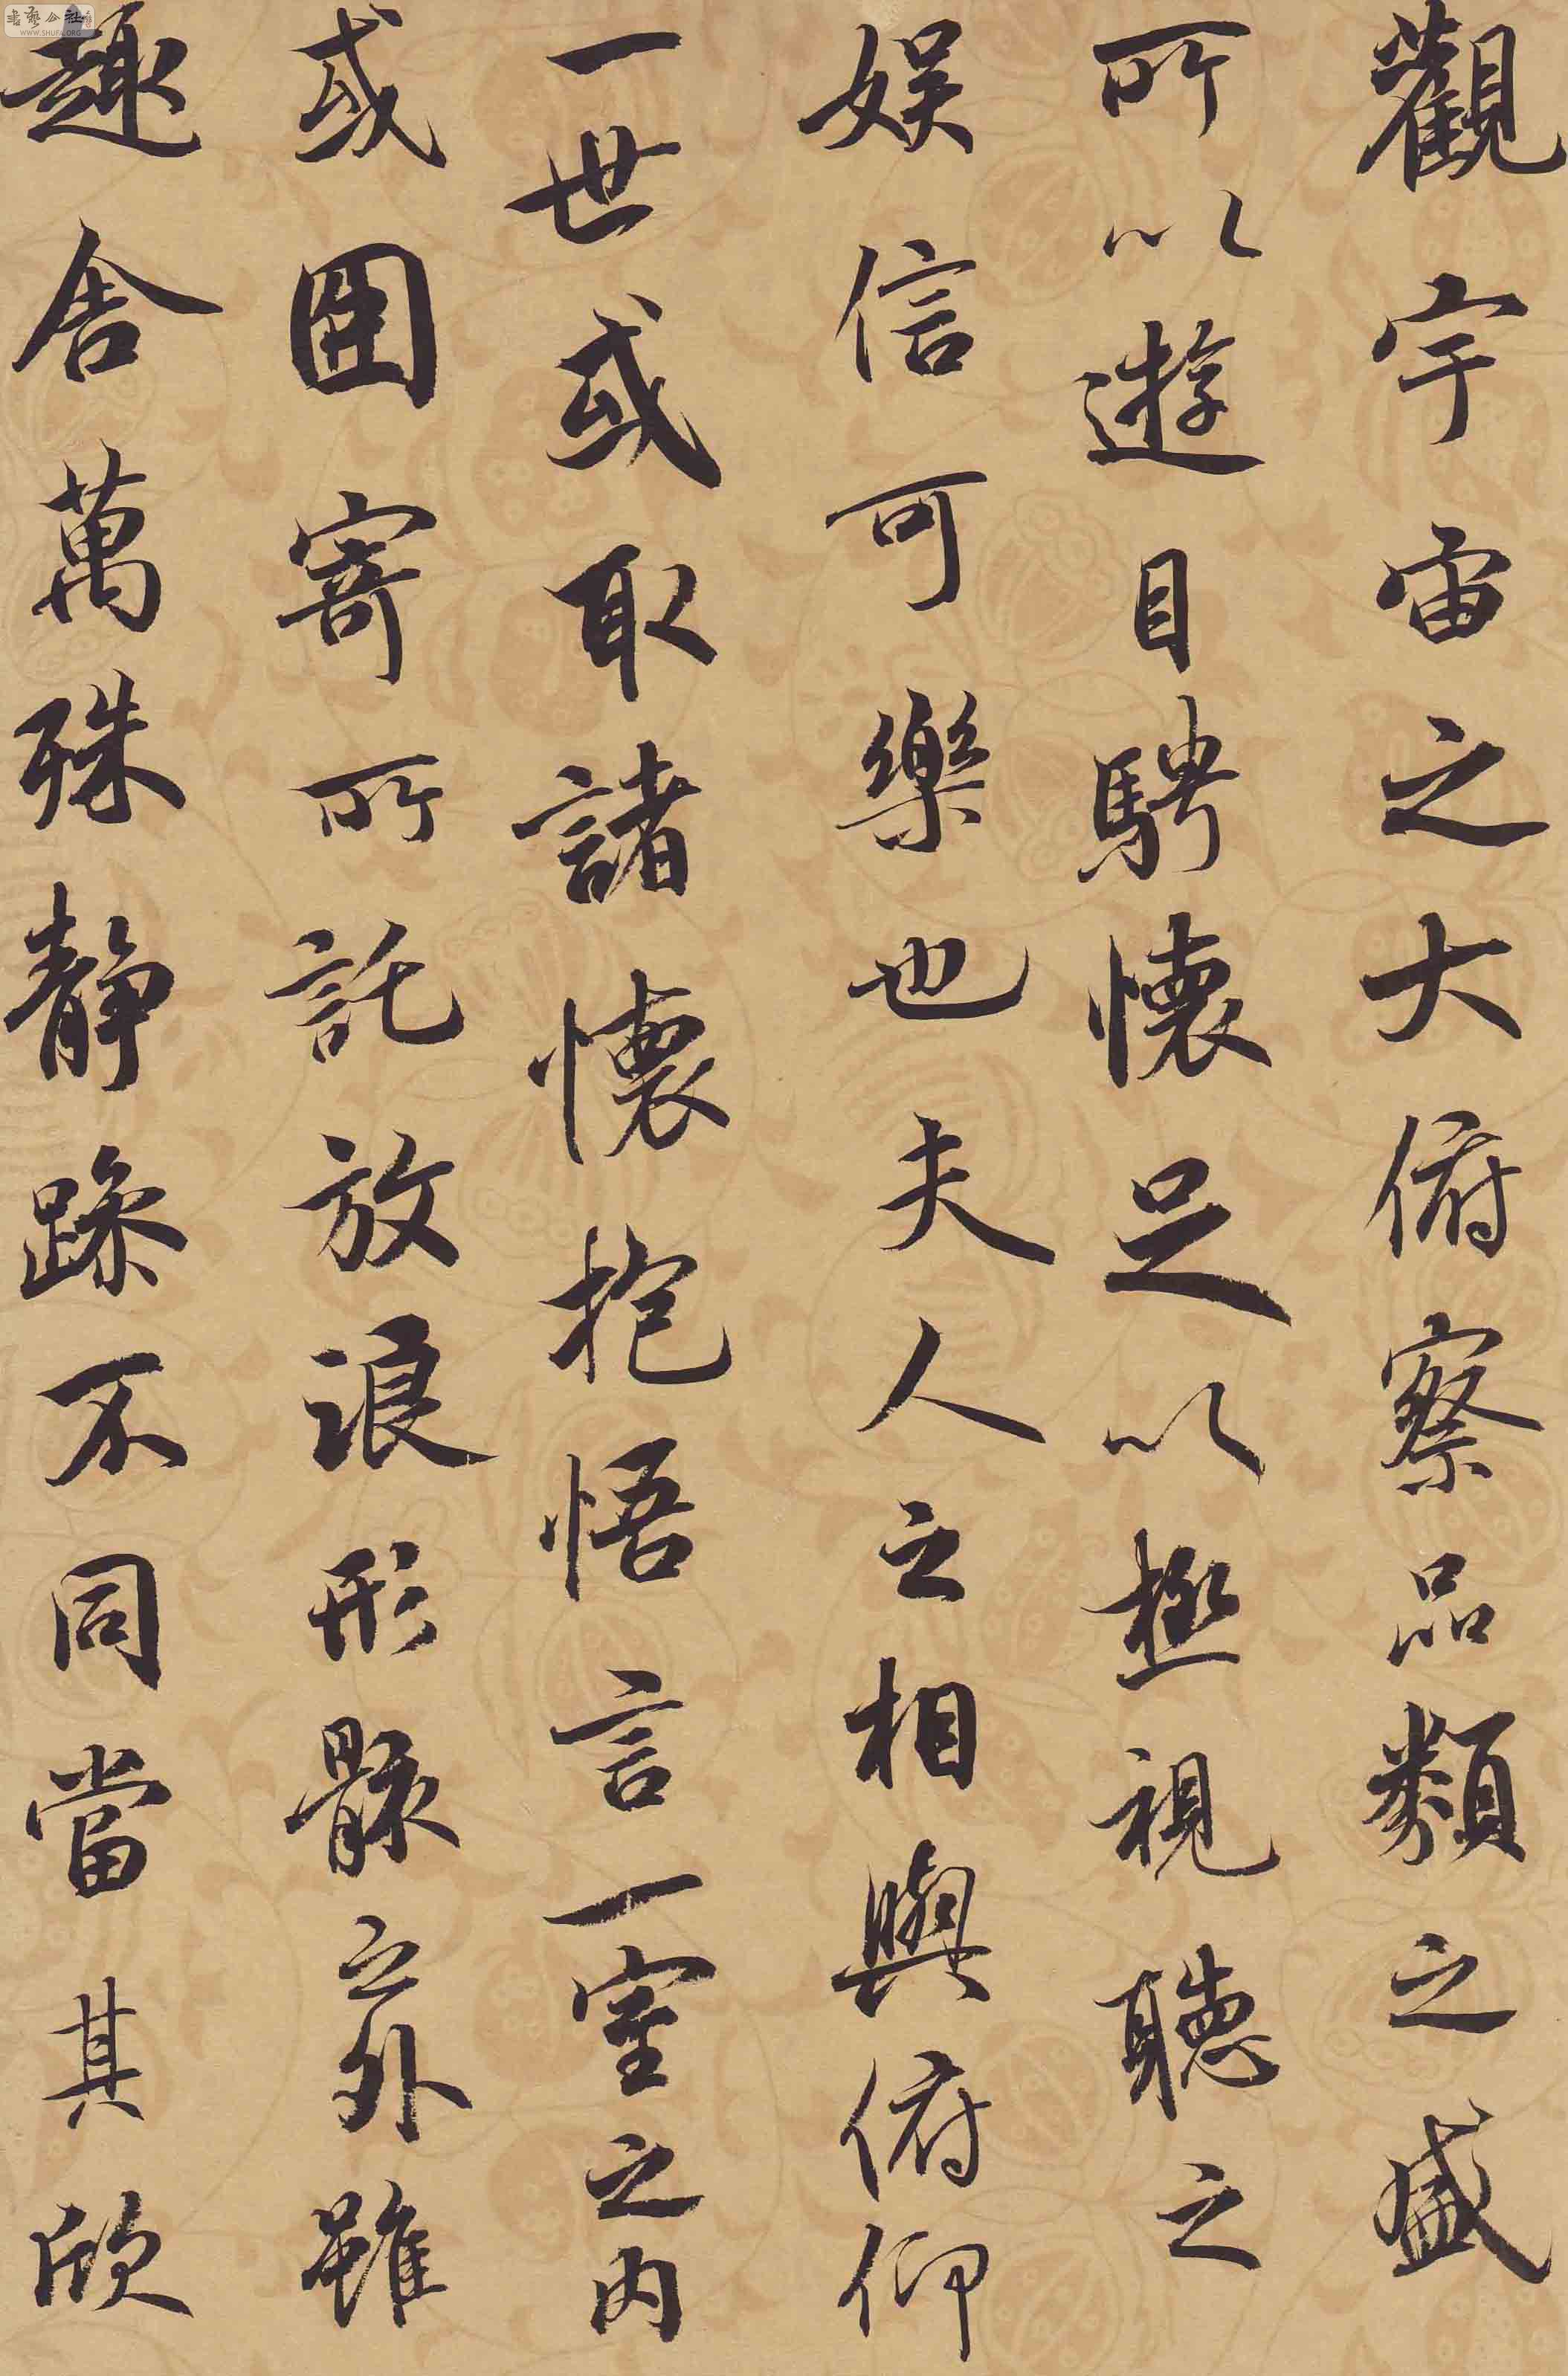 觀宇宙之大俯察品類之盛
所以遊目騁懷足以極視聽之
娱信可樂也夫人之相與俯仰
一世或取諸懷抱悟言一室之内
或因寄所託放浪形骸之外雖
趣舍萬殊静躁不同當其欣
書藝公社
WWW.SHUFA.ORG